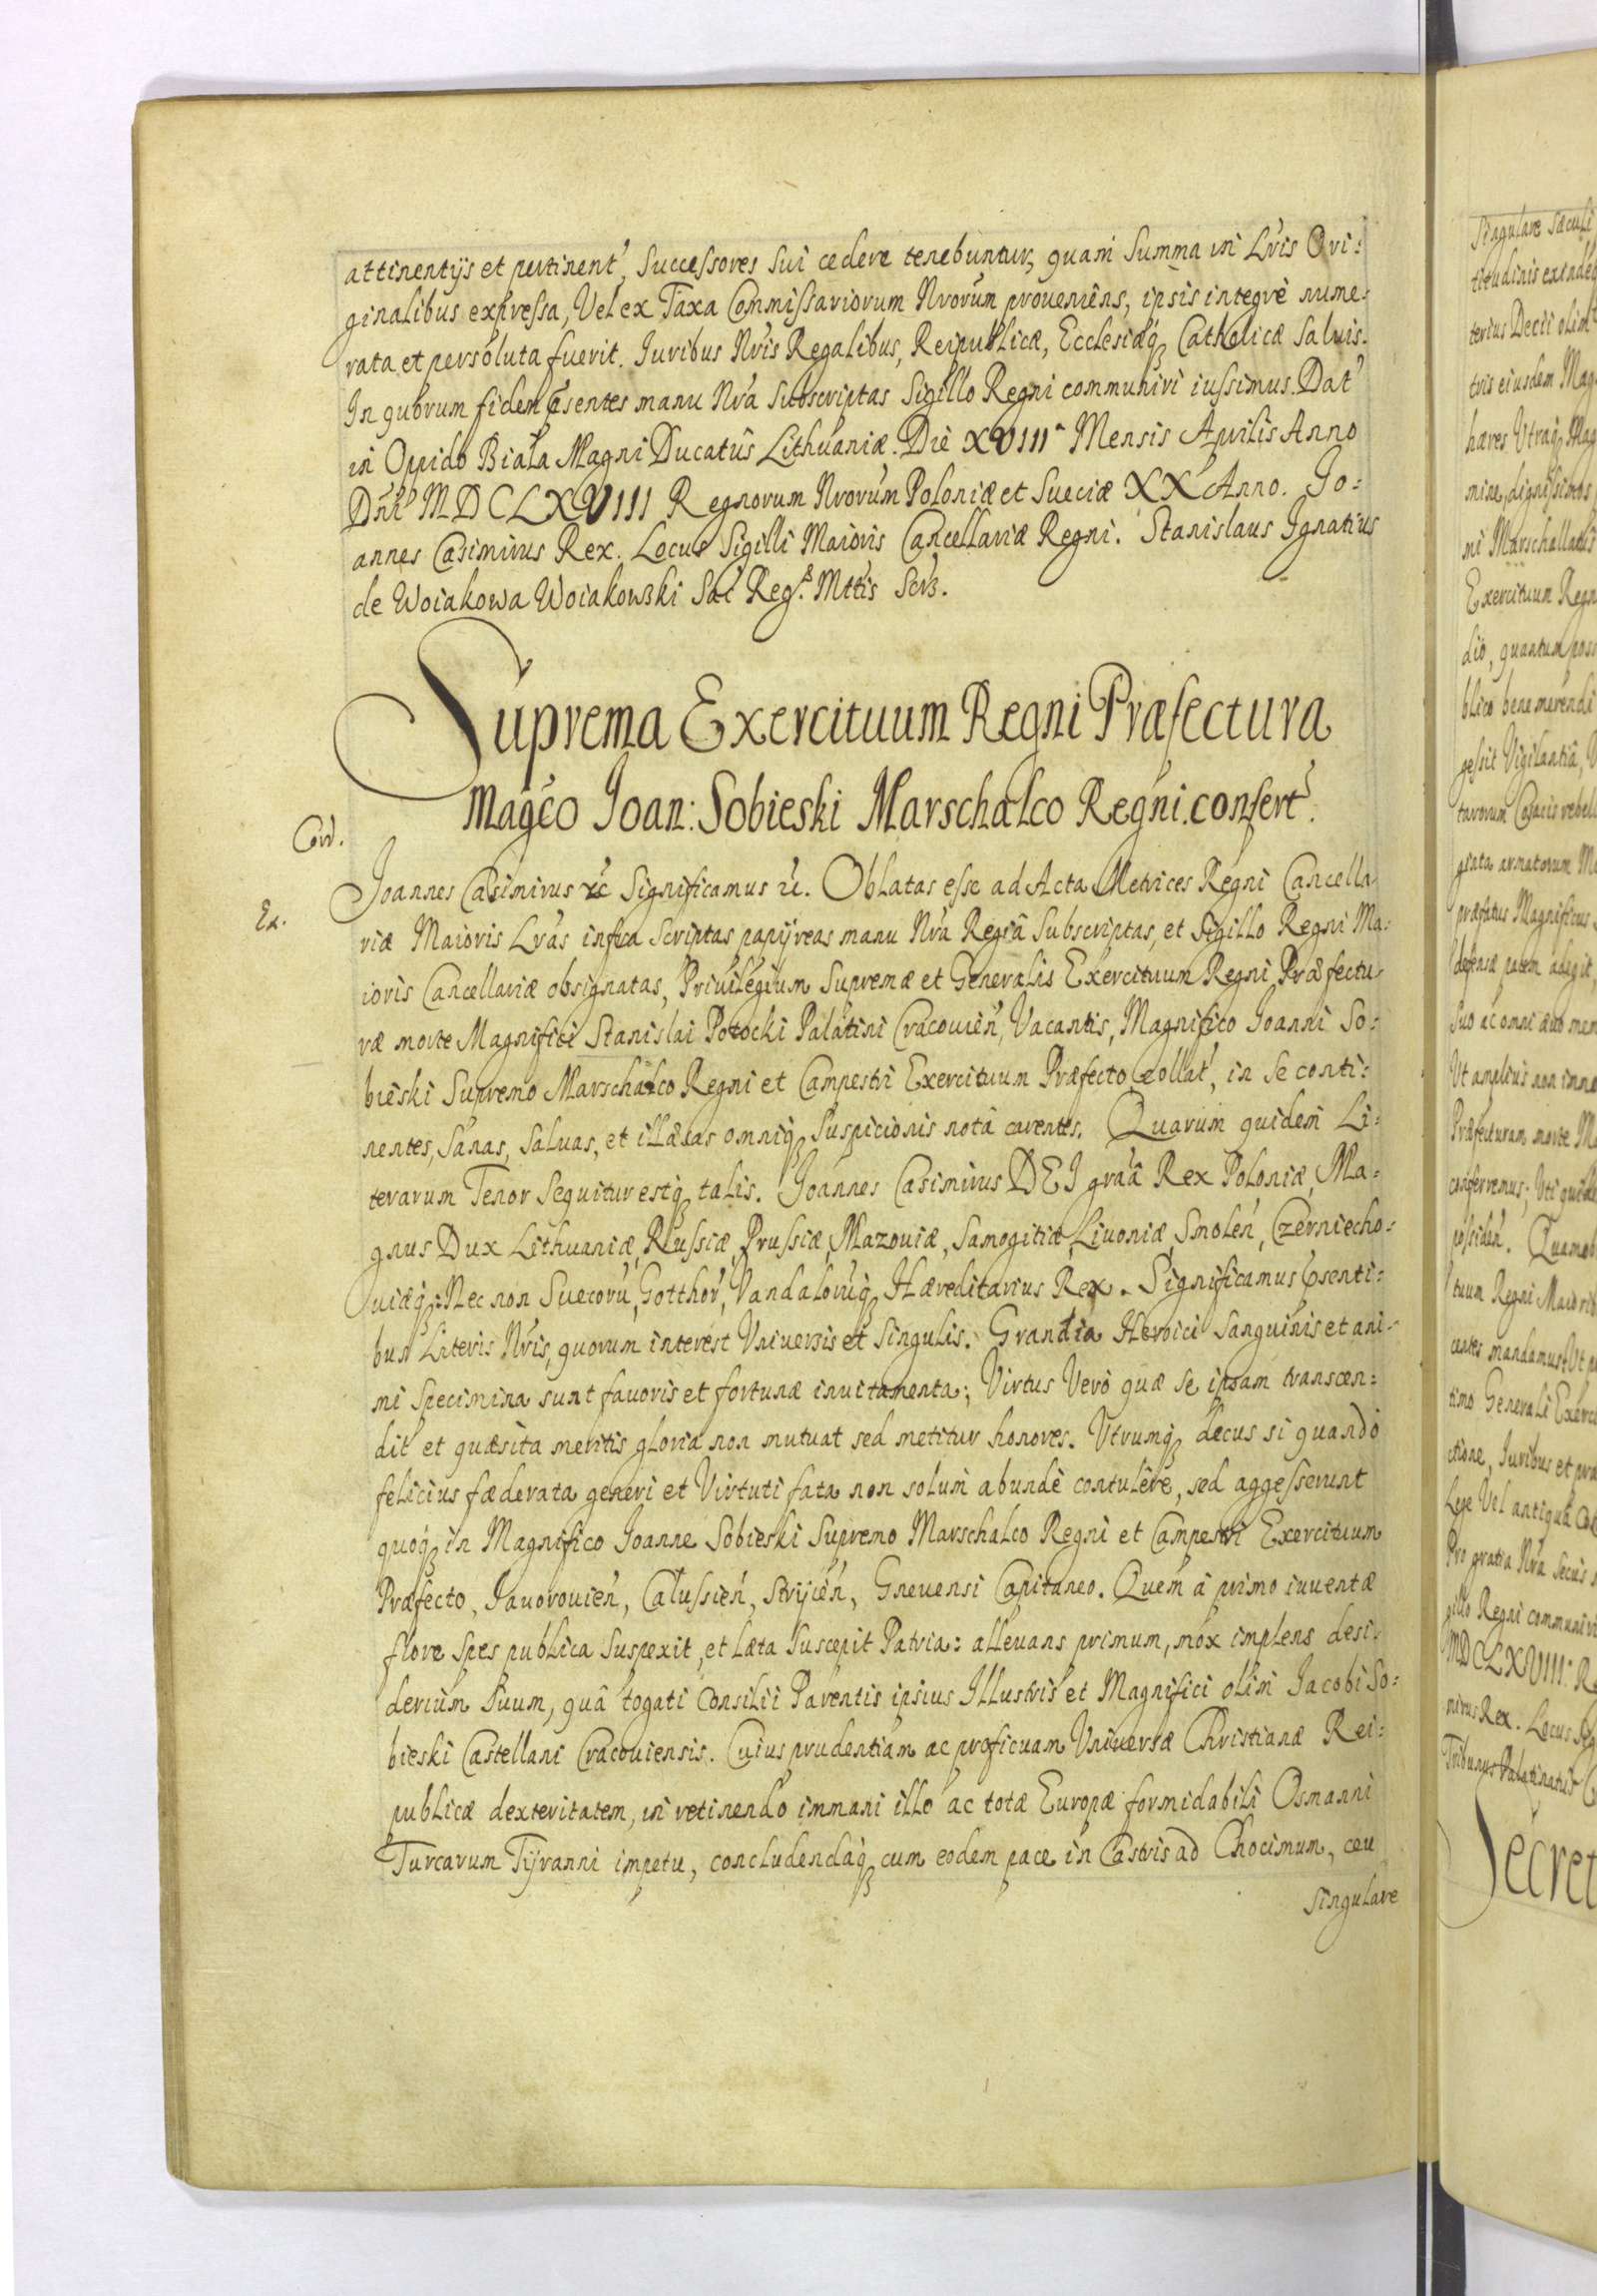 attinentijs et pertinent', Successores Sui cedere tenebuntur, quam Summa in Lris Ori:
ginalibus expressa, Vel ex Taxa Commissariorum Nrorum proueniens, ipsis integrè nume:
rata et persoluta fuerit. Iuribus Nris Regalibus, Reipublicæ, Ecclesiæq3 Catholicæ Saluis.
In quorum fidem p̃sentes manu Nrã Subscriptas Sigillo Regni communiri iussimus. Dat'
in Oppido Biała Magni Ducatûs Lithuaniæ. Die XVIII Mensis Aprilis Anno
Dni MDCLXVIII Regnorum Nrorum Poloniæ et Sueciæ XX Anno. Jo:
annes Casimirus Rex. Locus Sigilli Maioris Cancellariæ Regni. Stanislaus Ignatius
de Woiakowa Woiakowski Sac Reg. Mttis Scrb.
Suprema Exercituum Regni Præfectura
Magco Joan: Sobieski Marschalco Regni. confert'.
Cord.
Joannes Casimirus etc Significamus etc. Oblatas esse ad Acta Metrices Regni Cancella
Ex.
riæ Maioris Lrãs infra Scriptas papijreas manu Nrã Regiâ Subscriptas, et Sigillo Regni Ma:
ioris Cancellariæ obsignatas, Priuilegium Supremæ et Generalis Exercituum Regni Præfectu
ræ morte Magnifici Stanislai Potocki Palatini Cracouien', Vacantis, Magnifico Joanni So:
bieski Supremo Marschalco Regni et Campestri Exercituum Præfecto collat', in Se conti:
nentes, Sanas, Saluas, et illæsas omniq3 Suspicionis notâ carentes. Quarum quidem Li:
terarum Tenor Sequitur estq3 talis. Joannes Casimirus DEI grãa Rex Poloniæ, Ma:
gnus Dux Lithuaniæ, Russiæ, Prussiæ, Mazouiæ, Samogitiæ, Liuoniæ, Smolen', Czerniecho:
uiæq3: Nec non Suecorũ, Gotthor', Vandalorũq3 Hæreditarius Rex. Significamus p̃senti:
bus Literis Nris, quorum interest Vniuersis et Singulis. Grandia Heroici Sanguinis et ani:
mi Specimina sunt fauoris et fortunæ inuitamenta; Virtus Verò quæ se ipsam transcen:
dit et quæsita meritis gloria non mutuat sed metitur honores. Vtrumq3 decus si quando
felicius fæderata generi et Virtuti fata non solum abundè contulêre, sed aggesserunt
quoq3 in Magnifico Joanne Sobieski Supremo Marschalco Regni et Campestri Exercituum
Præfecto, Jauorouien', Calussien', Stryien', Gneuensi Capitaneo. Quem à primo iuuentæ
flore Spes publica Suspexit, et læta Suscepit Patria: alleuans primum, mox implens desi:
derium Suum, quâ togati Consilii Parentis ipsius Illustris et Magnifici olim Jacobi So:
bieski Castellani Cracouiensis. Cuius prudentiam ac proficuam Vniuersæ Christianæ Rei:
publicæ dexteritatem, in retinendo immani illo ac totæ Europæ formidabili Osmanni
Turcarum Tyranni impetu, concludendaq3 cum eodem pace in Castris ad Chocimum, ceu
Singulare